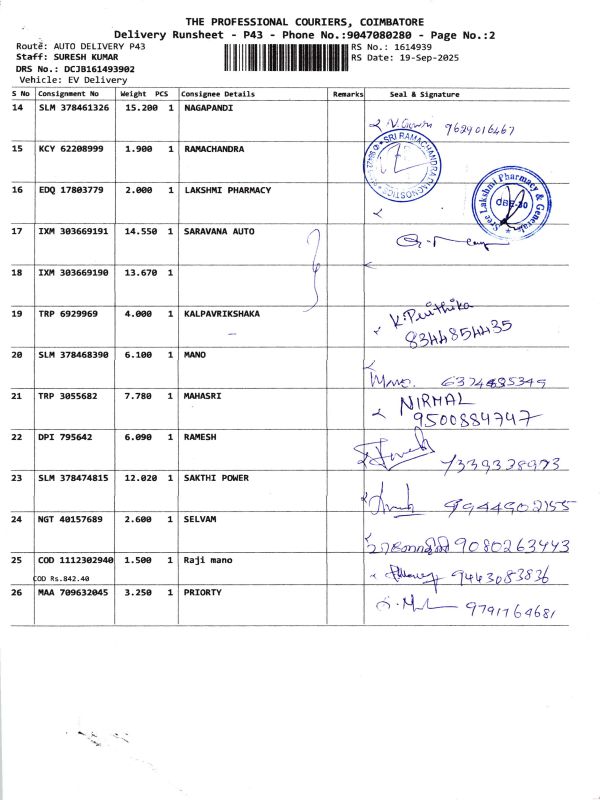 THE PROFESSIONAL COURIERS, COIMBATORE
Delivery Runsheet - P43 - Phone No.:9047080280 - Page No.:2
Route: AUTO DELIVERY P43 RS No.: 1614939
Staff: SURESH KUMAR RS Date: 19-Sep-2025
DRS No.: DCJB161493902
Vehicle: EV Delivery
S No Consignment No Weight PCS Consignee Details Remarks Seal & Signature
14 SLM 378461326 15.200 1 NAGAPANDI
9629016467
15 KCY 62208999 1.900 1 RAMACHANDRA
SRI RAMACHANDRA DIAGNOSTICS
16 EDQ 17803779 2.000 1 LAKSHMI PHARMACY
Sree Lakshmi Pharmacy & General
17 IXM 303669191 14.550 1 SARAVANA AUTO
18 IXM 303669190 13.670 1
19 TRP 6929969 4.000 1 KALPAVRIKSHAKA
K. Prithika
8344854435
20 SLM 378468390 6.100 1 MANO
Mano. 6374485349
21 TRP 3055682 7.780 1 MAHASRI
NIRMAL
9500884747
22 DPI 795642 6.090 1 RAMESH
7339328973
23 SLM 378474815 12.020 1 SAKTHI POWER
9944902155
24 NGT 40157689 2.600 1 SELVAM
9080263443
25 COD 1112302940 1.500 1 Raji mano
COD Rs.842.40
9443083836
26 MAA 709632045 3.250 1 PRIORTY
9791764681